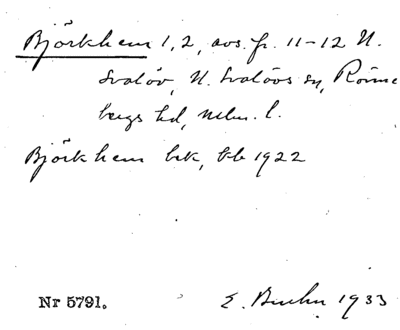 Björkhem 1, 2, avs. fr. 11-12 N.
Svalöv, N. Svalövs sn, Rönne
bergs hd, Mlm. l.
Björkhem brk, tb 1922
Nr 5791. E. 1933